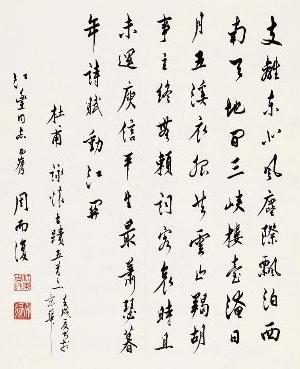 支離東北風塵際飄泊西
南天地間三峽樓臺淹日
月五溪衣服共雲山羯胡
事主終無賴詞客哀時且
未還庾信平生最蕭瑟暮
年詩賦動江關
杜甫 詠懷古蹟五首之一 壬戌夏書於
京華
同志 周而復